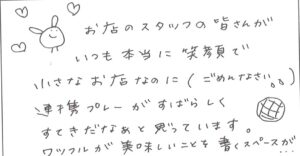 お店のスタッフの皆さんが
いつも本当に笑顔で
小さなお店なのに(ごめんなさい。。)
連携プレーがすばらしく
すてきだなぁと思っています。
ワッフルが美味しいことを書くスペースが…